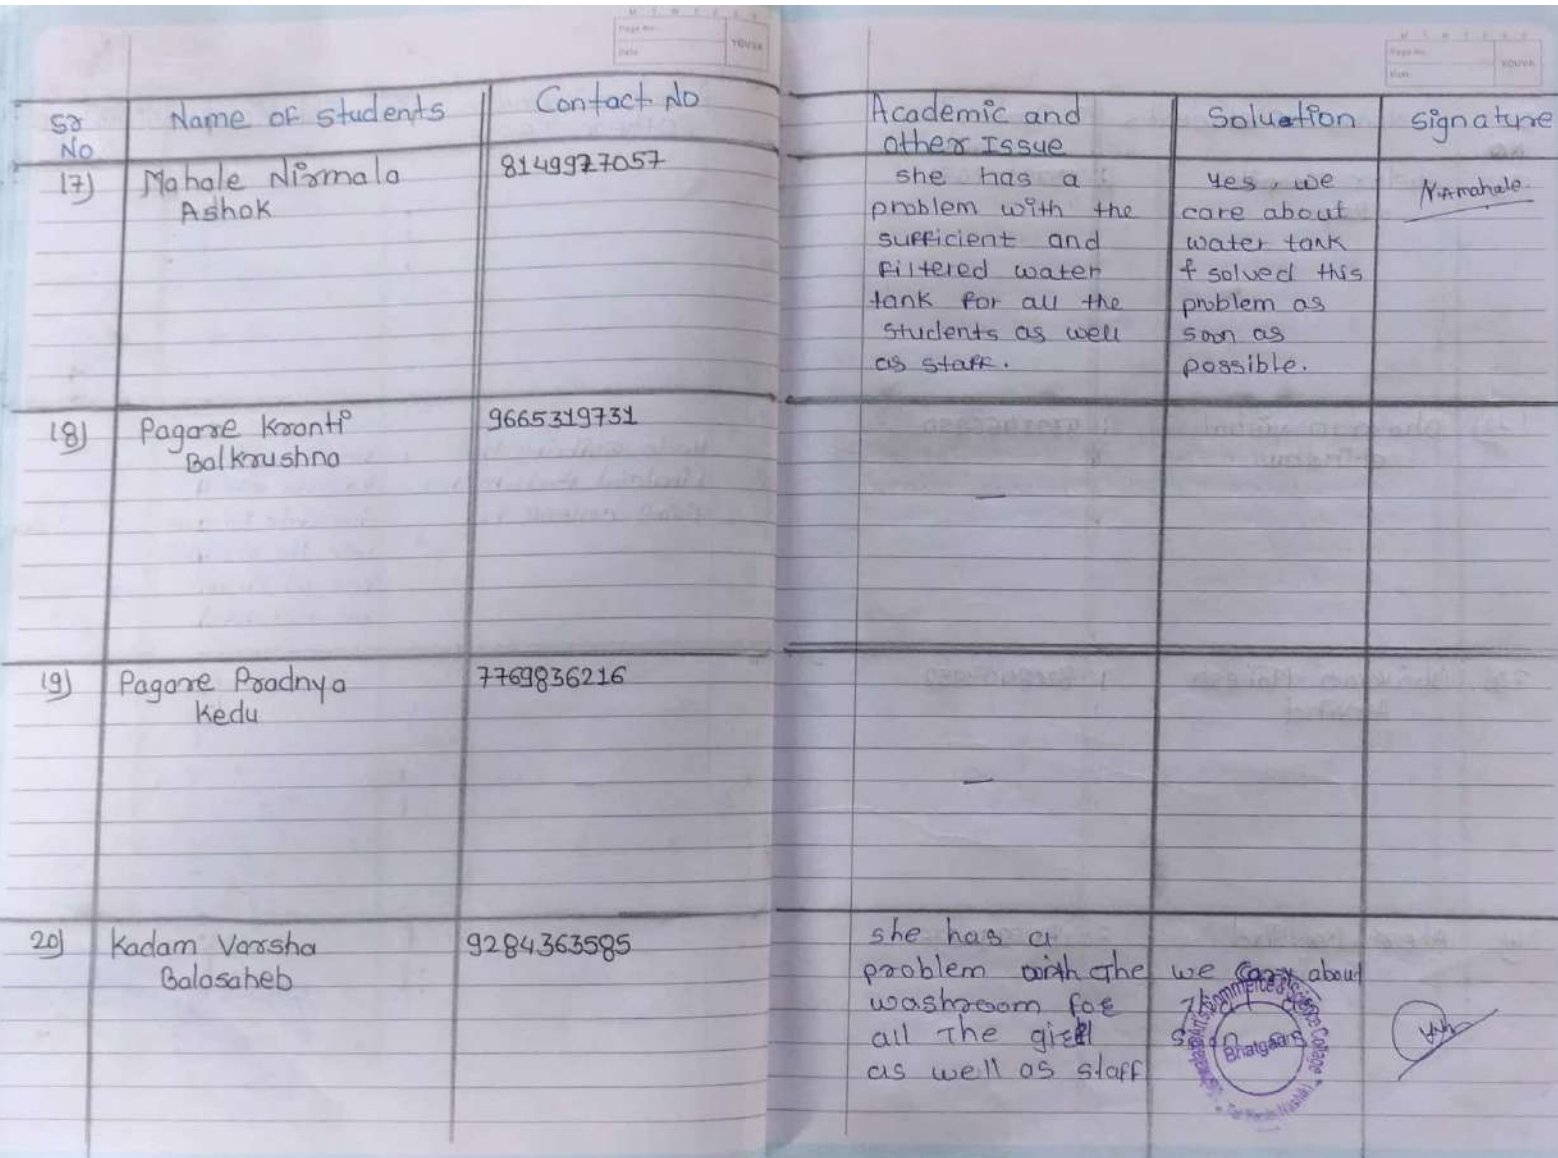 M T W T F S S
Page No.:
Date:
YOUVA
M T W T F S S
Page No.:
Date:
YOUVA
Sr No
Name of students
Contact No
Academic and
other Issue
Soluation
signature
17)
Mahale Nirmala
Ashok
8149927057
she has a
problem with the
sufficient and
filtered water
tank for all the
students as well
as staff.
yes, we
care about
water tank
& solved this
problem as
soon as
possible.
N.A.mahale.
18)
Pagare Kranti
Balkrushna
9665319731
—
19)
Pagare Pradnya
Kedu
7769836216
—
20)
Kadam Varsha
Balasaheb
9284363585
she has a
problem with the
washroom for
all The girl
as well as staff
we care about
Commerce & Science College
Bhatgaon